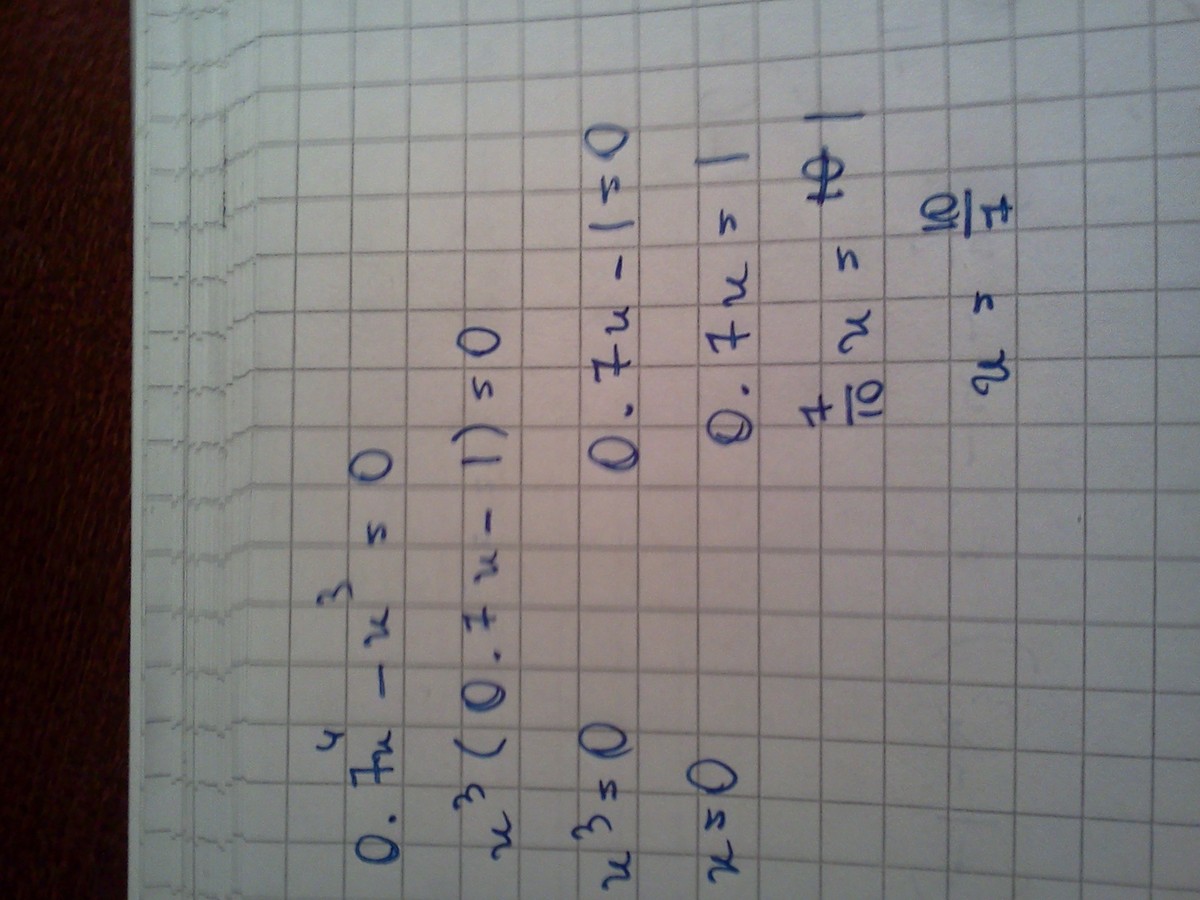 0.7x⁴ - x³ = 0
x³(0.7x - 1) = 0
x³ = 0 0.7x - 1 = 0
x = 0 0.7x = 1
7/10 x = 1
x = 10/7